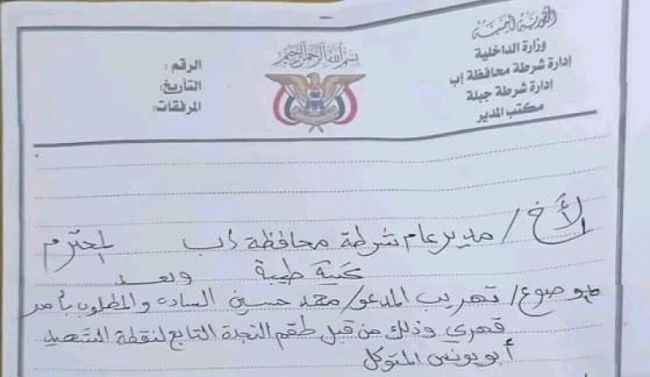 الجمهورية اليمنية
وزارة الداخلية
إدارة شرطة محافظة إب
إدارة شرطة جبلة
مكتب المدير
بسم الله الرحمن الرحيم
الرقم :
التاريخ :
المرفقات :
الأخ / مدير عام شرطة محافظة إب المحترم
تحية طيبة وبعد
موضوع / تهريب المدعو / محمد حسين السادة والمطلوب بأمر
قهري وذلك من قبل طقم النجدة التابع لنقطة الشهيد
أبو يونس المتوكل